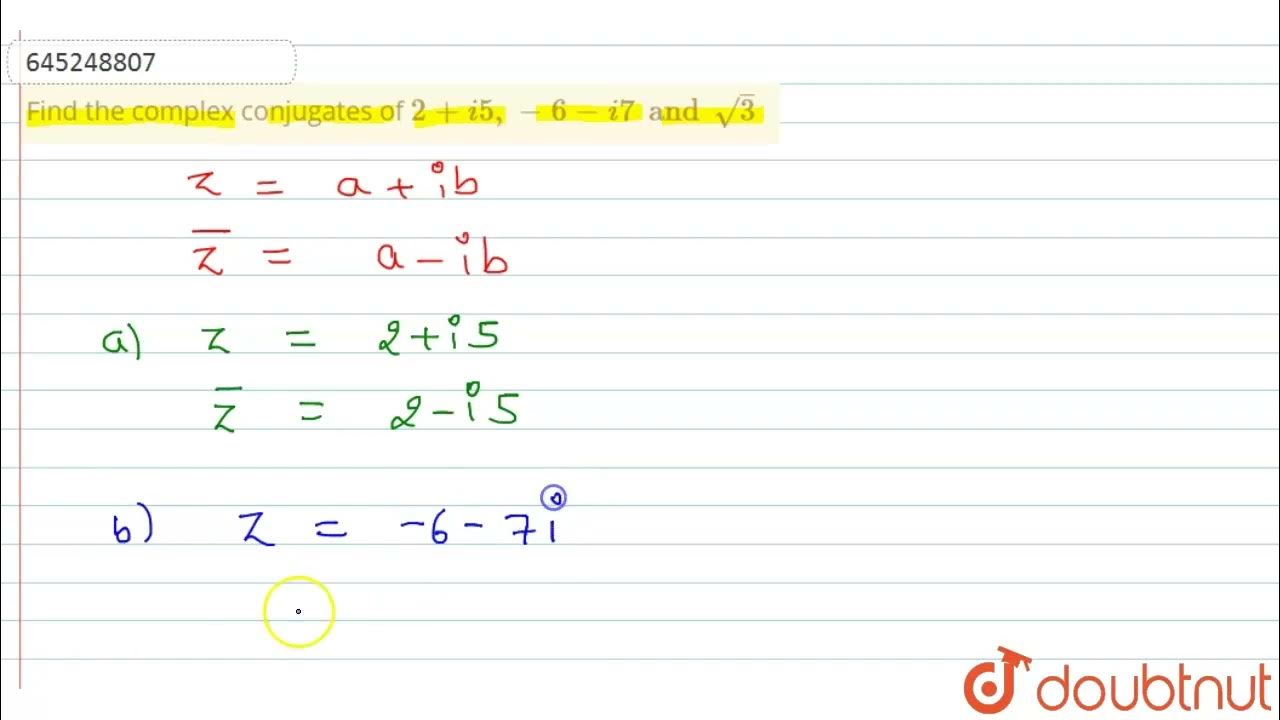 645248807
Find the complex conjugates of 2 + i5, − 6 − i7 and √3
z = a + ib
z̅ = a - ib
a) z = 2 + i5
z̅ = 2 - i5
b) z = -6 - 7i
doubtnut